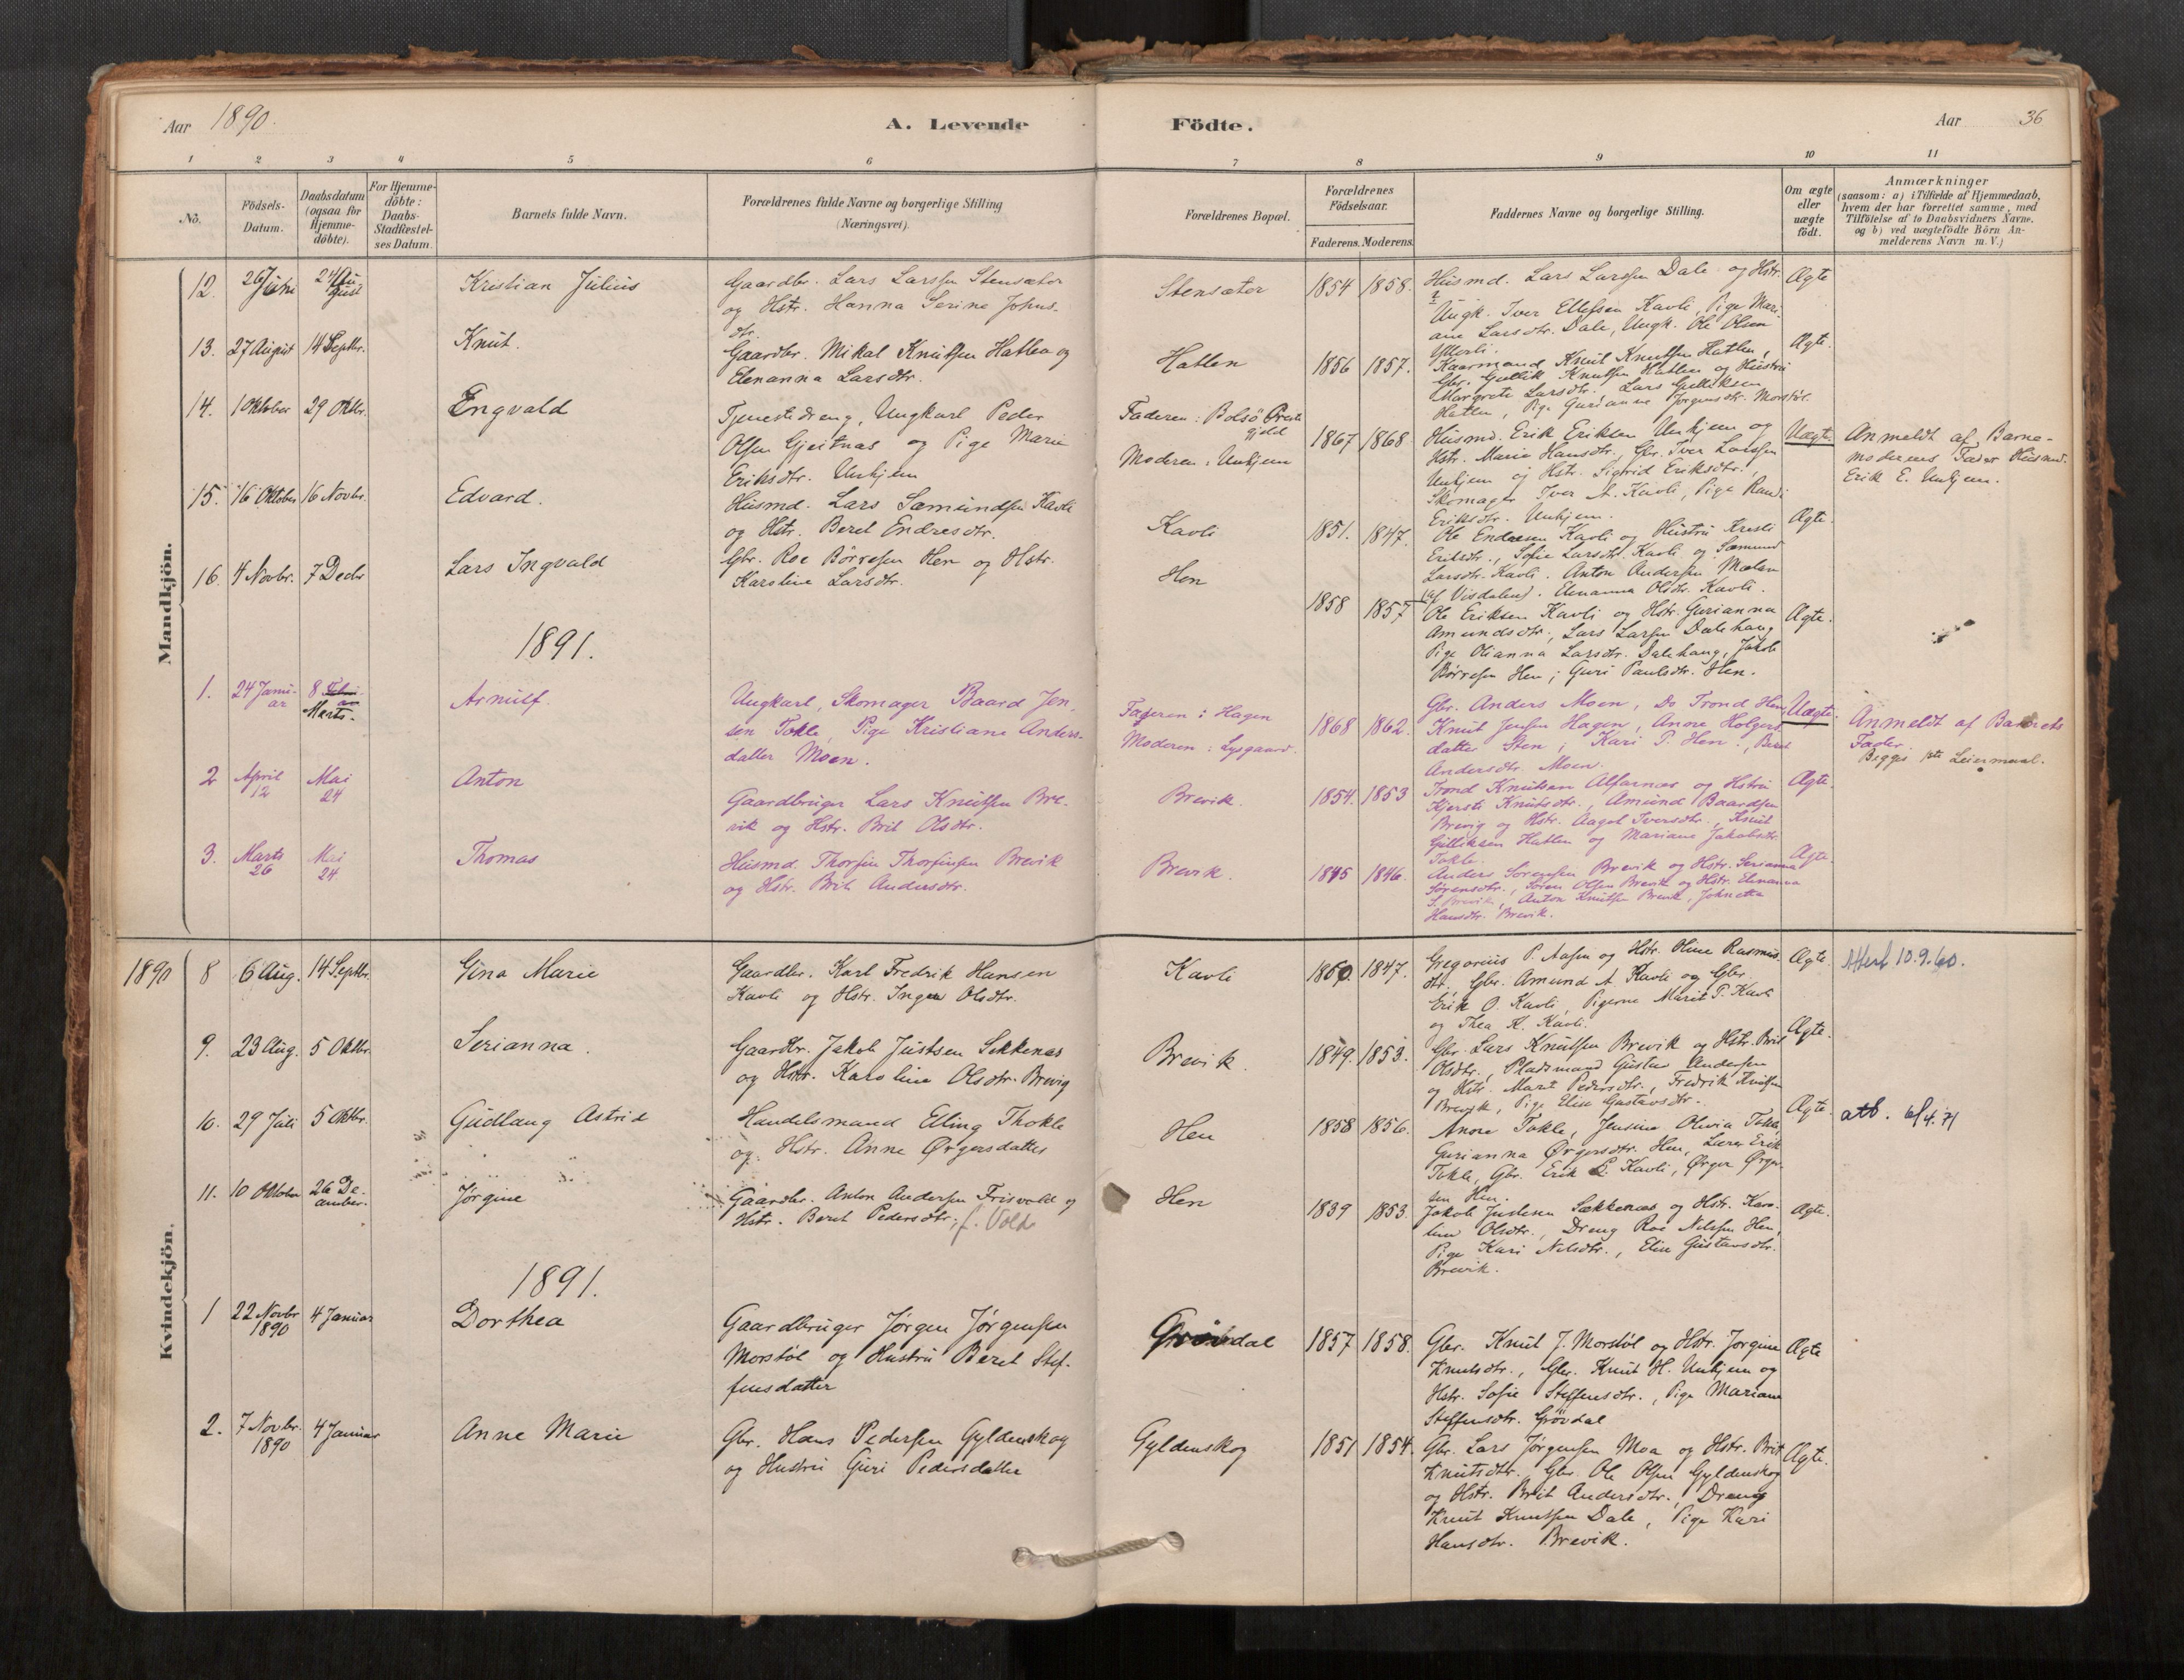 Aar 1890.
A. Levende Födte.
Aar 36
1 2 3 4 5 6 7 8 9 10 11
No.
Födsels-
Datum.
Daabsdatum
(ogsaa for
Hjemme-
döbte).
For Hjemme-
döbte:
Daabs-
Stadfæstel-
ses Datum.
Barnets fulde Navn.
Forældrenes fulde Navne og borgerlige Stilling
(Næringsvei).
Forældrenes Bopæl.
Forældrenes
Födselsaar.
Faderens. Moderens.
Faddernes Navne og borgerlige Stilling.
Om ægte
eller
uægte
födt.
Anmærkninger
(saasom: a) i Tilfælde af Hjemmedaab,
hvem der har forrettet samme, med
Tilföielse af to Daabsvidners Navne,
og b) ved uægtefödte Börn An-
melderens Navn m. V.)
Mandkjön.
12. 26 Juni 24 Au-
gust
Kristian Julius
Gaardbr. Lars Larssen Stensæter
og Hstr. Hanna Serine Johns-
dtr.
Stensæter
1854 1858.
Husmd. Lars Larssen Dale og Hstr.
Ungk. Iver Ellefsen Kavli, Pige Mari-
ane Larsdtr. Dale, Ungk. Ole Olsen
Ytterli.
Ægte
13. 27 August 14 Septbr.
Knut.
Gaardbr. Mikal Knutsen Hatlen og
Elenanna Larsdtr.
Hatlen
1856 1857.
Kaarmand Knut Knutsen Hatlen,
Gbr. Gullik Knutsen Hatlen og Hustru
Margrete Larsdtr. Lars Gulliksen
Hatlen, Pige Gurianne Jørgensdtr. Morstøl.
Ægte.
14. 1 Oktober 29 Oktbr.
Engvald
Tjenestedreng, Ungkarl Peder
Olsen Gjeitnæs og Pige Marie
Eriksdtr. Unhjem
Faderen: Bolsø Præste
gjeld
Moderen: Unhjem
1867 1868
Husmd. Erik Eriksen Unhjem og
Hstr. Marie Hansdtr., Gbr. Iver Larssen
Unhjem og Hstr. Sigrid Eriksdtr.,
Skomager Iver A. Kavli, Pige Randi
Eriksdtr. Unhjem.
Uægte.
Anmeldt af Barne-
moderens Fader Husmd.
Erik E. Unhjem.
15. 16 Oktober 16 Novbr.
Edvard.
Husmd. Lars Sæmundsen Kavli
og Hstr. Beret Endresdtr.
Kavli
1851. 1847.
Ole Endresen Kavli og Hustru Kristi
Eriksdtr., Sofie Larsdtr. Kavli og Sæmund
Larsdtr. Kavli. Anton Andersen Mælen
(af Visdalen). Elenanna Olsdtr. Kavli.
Ægte.
16. 4 Novbr. 7 Decbr
Lars Ingvald
Gbr. Roe Børresen Hen og Hstr.
Karoline Larsdtr.
Hen
1858 1857
Ole Eriksen Kavli og Hstr. Gurianna
Amundsdtr., Lars Larsen Dalehaug
Pige Olianna Larsdtr. Dalehaug, Jakob
Børresen Hen; Guri Paulsdtr. Hen.
Ægte.
1891.
1. 24 Janu-
ar
8 Febru-
ar
Marts.
Arnulf.
Ungkarl, Skomager Baard Jen-
sen Tokle, Pige Kristiane Anders-
datter Moen.
Faderen: Hagen
Moderen: Lysgaard.
1868 1862.
Gbr. Anders Moen, Do Trond Hen
Knut Jensen Hagen, Anore Holgers-
datter Sten; Kari P. Hen., Beret
Andersdtr. Moen.
Uægte.
Anmeldt af Barnets
Fader.
Begges 1ste Leiermaal.
2 April
12
Mai
24
Anton
Gaardbruger Lars Knutsen Bre-
vik og Hstr. Brit Olsdtr.
Brevik.
1854. 1853
Trond Knutsen Alfarnæs og Hstru
Kjersti Knutsdtr., Amund Baardsen
Brevig og Hstr. Aagot Iversdtr., Knut
Gulliksen Hatlen og Mariane Jakobsdtr.
Tokle.
Ægte.
3. Marts
26
Mai
24.
Thomas
Husmd. Thorfin Thorfinsen Brevik
og Hstr. Brit Andersdtr.
Brevik.
1845 1846.
Anders Sørensen Brevik og Hstr. Serianna
Sørensdtr., Søren Olsen Brevik og Hstr. Elenanna
S. Brevik, Anton Knutsen Brevik, Johnetta
Hansdtr. Brevik.
Ægte.
Kvindekjön.
1890 8 6 Aug. 14 Septbr.
Gina Marie
Gaardbr. Karl Fredrik Hansen
Kavli og Hstr. Inger Olsdtr.
Kavli
1860. 1847.
Gregorius P. Aasen og Hstr. Oline Rasmus-
dtr. Gbr. Amund A. Kavli og Gbr.
Erik O. Kavli, Pigerne Marit P. Kavli
og Thea K. Kavli.
Ægte.
Attest 10.9.60.
9. 23 Aug. 5 Oktbr.
Serianna.
Gaardbr. Jakob Justsen Sekkenæs
og Hstr. Karoline Olsdtr. Brevig
Brevik.
1849. 1853.
Gbr. Lars Knutsen Brevik og Hstr. Brit
Olsdtr., Pladsmand Gustav Andersen
og Hstr. Marit Pedersdtr., Fredrik Knutsen
Brevik, Pige Elise Gustavsdtr.
Ægte.
10. 29 Juli 5 Oktbr.
Gudlaug Astrid
Handelsmand Elling Thokle
og Hstr. Anne Ørgersdatter
Hen
1858 1856.
Anore Tokle, Jensine Olivia Tokle,
Gurianna Ørgersdtr. Hen, Lærer Erik
Tokle, Gbr. Erik P. Kavli, Ørger Ørger-
sen Hen.
Ægte.
att. 6/4.71
11. 10 Oktober 26 De-
cember.
Jørgine
Gaardbr. Anton Andersen Frisvold og
Hstr. Beret Pedersdtr. f. Vold
Hen
1839 1853.
Jakob Justesen Sækkenæs og Hstr. Karo-
line Olsdtr., Dreng Roe Nilssen Hen,
Pige Kari Nilsdtr., Elise Gustavsdtr.
Brevik.
Ægte.
1891.
1 22 Novbr
1890
4 Januar
Dorthea
Gaardbruger Jørgen Jørgensen
Morstøl og Hustru Beret Stef-
fensdatter
Grøvdal
1857 1858.
Gbr. Knut J. Morstøl og Hstr. Jørgine
Knutsdtr., Gbr. Knut H. Unhjem og
Hstr. Sofie Steffensdtr., Pige Mariane
Steffensdtr. Grøvdal
Ægte
2. 7 Novbr.
1890
4 Januar
Anne Marie
Gbr. Hans Pedersen Gyldenskog
og Hustru Guri Pedersdatter
Gyldenskog
1851 1854.
Gbr. Lars Jørgensen Moa og Hstr. Brit
Knutsdtr. Gbr. Ole Olsen Gyldenskog
og Hstr. Brit Andersdtr., Dreng
Knut Knutsen Dale, Pige Kari
Hansdtr. Brevik.
Ægte.